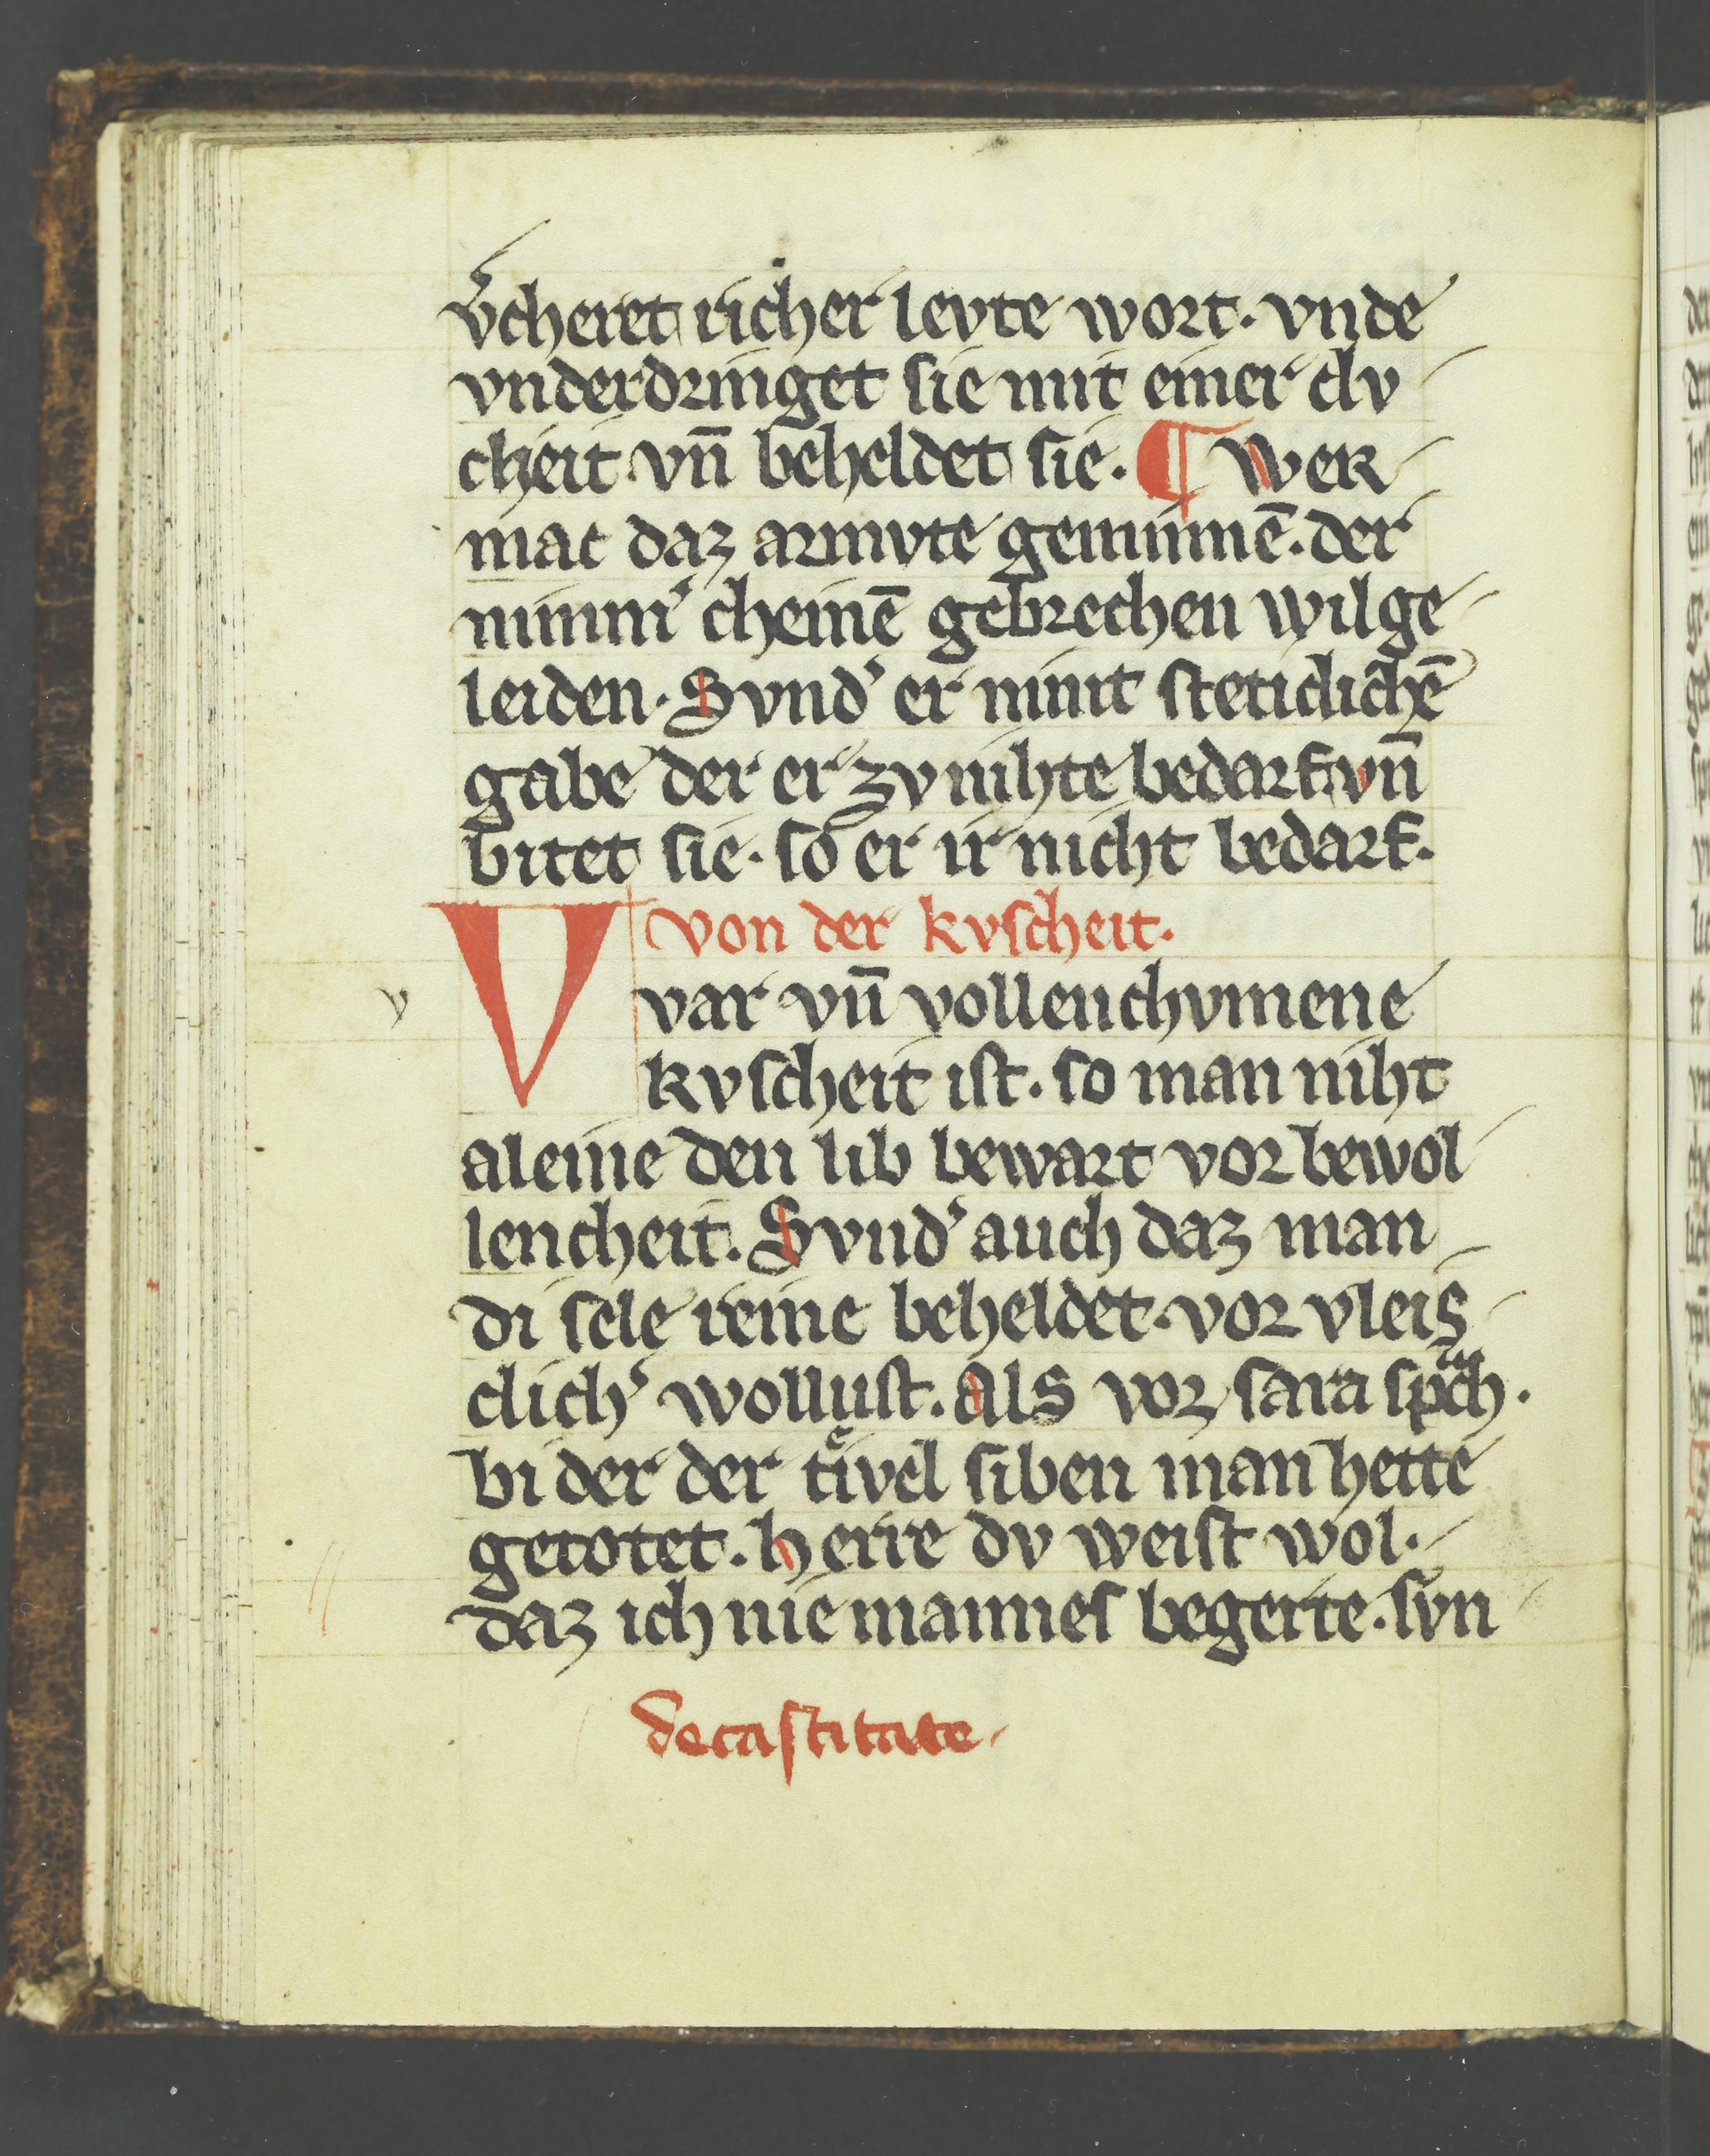 v̄cheret richer levte wort. vnde
vnderdringet sie mit einer clv
cheit. vn̄ beheldet sie. ¶ Wer
mac daz armvte geminnē. der
nimm' cheinē gebrechen wil ge
leiden. Svnd' er nimt steticlichē
gabe der er zv nihte bedarf. vn̄
bitet sie. so er ir nicht bedarf.
Von der kvscheit.
v
Var vn̄ vollenchvmene
kvscheit ist. so man niht
aleine den lib bewart vor bewol
lencheit. Svnd' auch daz man
di sele reine beheldet. vor vleis
clich' wollust. Als vor sara spͣch.
bi der der tiͤvel siben man hette
getotet. herre dv weist wol.
daz ich nie mannes begerte. svn
de castitate.